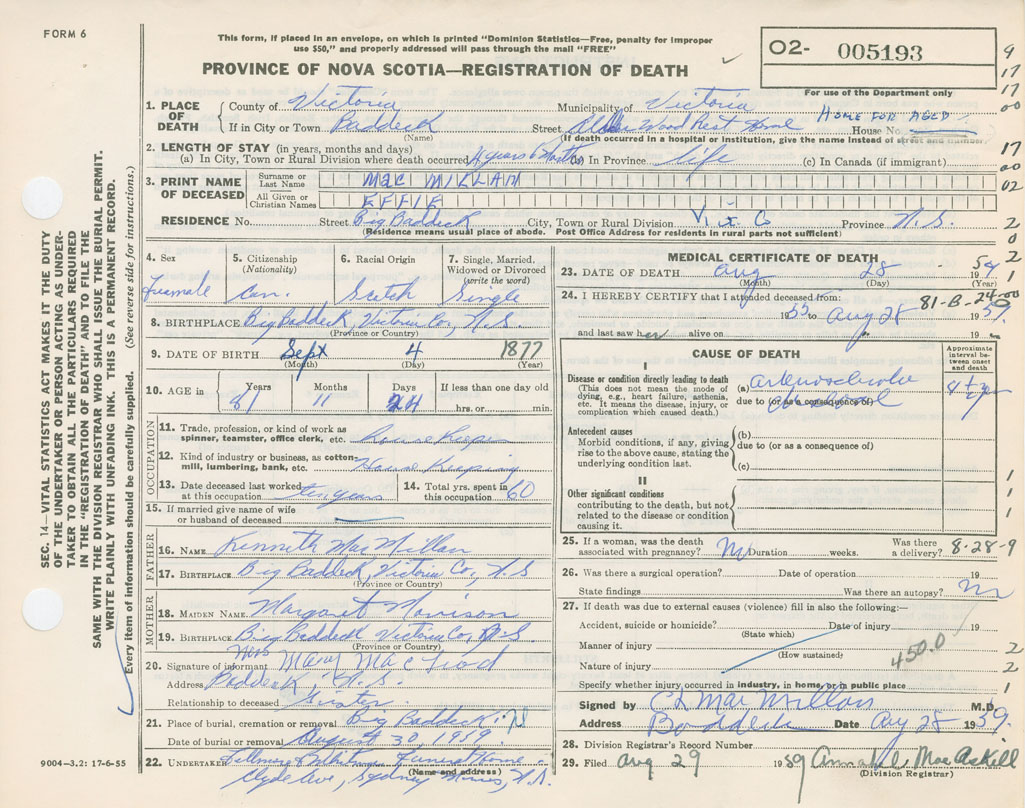 FORM 6
This form, if placed in an envelope, on which is printed "Dominion Statistics—Free, penalty for improper
use $50," and properly addressed will pass through the mail "FREE"
PROVINCE OF NOVA SCOTIA—REGISTRATION OF DEATH
O2- 005193
For use of the Department only
9
17
17
00
1. PLACE OF DEATH
County of Victoria Municipality of Victoria
HOME FOR AGED
If in City or Town Baddeck Street Wood Rest Home House No.
(Name) (If death occurred in a hospital or institution, give the name instead of street and number)
2. LENGTH OF STAY (in years, months and days)
(a) In City, Town or Rural Division where death occurred years 6 Months (b) In Province life (c) In Canada (if immigrant)
17
00
02
3. PRINT NAME OF DECEASED
Surname or Last Name MAC MILLAN
All Given or Christian Names EFFIE
RESIDENCE No. Street Big Baddeck City, Town or Rural Division Vic Co Province N.S.
(Residence means usual place of abode. Post Office Address for residents in rural parts not sufficient)
2
0
2
4. Sex Female
5. Citizenship (Nationality) Can.
6. Racial Origin Scotch
7. Single, Married, Widowed or Divorced (write the word) Single
8. BIRTHPLACE Big Baddeck, Victoria Co, N.S.
(Province or Country)
9. DATE OF BIRTH Sept 4 1877
(Month) (Day) (Year)
10. AGE in Years Months Days If less than one day old
81 11 24 hrs. or min.
OCCUPATION
11. Trade, profession, or kind of work as spinner, teamster, office clerk, etc. House Keeper
12. Kind of industry or business, as cotton-mill, lumbering, bank, etc. House Keeping
13. Date deceased last worked at this occupation ten years
14. Total yrs. spent in this occupation 60
15. If married give name of wife or husband of deceased —
FATHER
16. NAME Kenneth MacMillan
17. BIRTHPLACE Big Baddeck, Victoria Co, N.S
(Province or Country)
MOTHER
18. MAIDEN NAME Margaret Morrison
19. BIRTHPLACE Big Baddeck Victoria Co, N.S.
(Province or Country)
20. Signature of informant Mrs Mary MacLeod
Address Baddeck N.S.
Relationship to deceased Sister
21. Place of burial, cremation or removal Big Baddeck N.S
Date of burial or removal August 30, 1959
22. UNDERTAKER Funeral Home
(Name and address)
Clyde Ave, Sydney Mines, N.S.
MEDICAL CERTIFICATE OF DEATH
23. DATE OF DEATH Aug 28 1959
(Month) (Day) (Year)
24. I HEREBY CERTIFY that I attended deceased from:
81-B-24-00
1955 to Aug 28 1959.
and last saw her alive on 19
CAUSE OF DEATH
Approximate interval between onset and death
I
Disease or condition directly leading to death
(This does not mean the mode of dying, e.g., heart failure, asthenia, etc. It means the disease, injury, or complication which caused death.)
(a) arteriosclerotic
due to (or as a consequence of)
4 yr
Antecedent causes
Morbid conditions, if any, giving rise to the above cause, stating the underlying condition last.
(b)
due to (or as a consequence of)
(c)
II
Other significant conditions
contributing to the death, but not related to the disease or condition causing it.
1
1
1
25. If a woman, was the death associated with pregnancy? No Duration weeks. Was there a delivery? 8-28-9
26. Was there a surgical operation? Date of operation 19
State findings Was there an autopsy? No
27. If death was due to external causes (violence) fill in also the following:—
Accident, suicide or homicide? Date of injury 19
(State which)
Manner of injury
(How sustained)
450.0
Nature of injury
2
2
1
Specify whether injury occurred in industry, in home, or in public place
Signed by C L MacMillan M.D.
Address Baddeck Date Aug 28 1959.
28. Division Registrar's Record Number
29. Filed Aug 29 1959 MacAskill
(Division Registrar)
9004—3.2: 17-6-55
SEC. 14—VITAL STATISTICS ACT MAKES IT THE DUTY
OF THE UNDERTAKER OR PERSON ACTING AS UNDER-
TAKER TO OBTAIN ALL THE PARTICULARS REQUIRED
IN THE "REGISTRATION OF DEATH" AND TO FILE THE
SAME WITH THE DIVISION REGISTRAR WHO SHALL ISSUE THE BURIAL PERMIT.
WRITE PLAINLY WITH UNFADING INK. THIS IS A PERMANENT RECORD.
Every item of information should be carefully supplied. (See reverse side for instructions.)